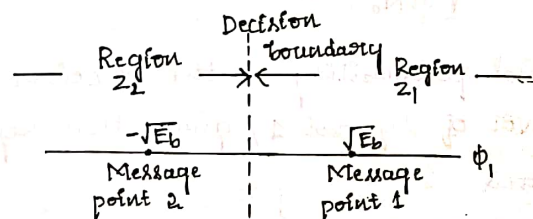 Decision
boundary
Region
Z₂
Region
Z₁
-√E_b
√E_b
ϕ₁
Message
point 2
Message
point 1